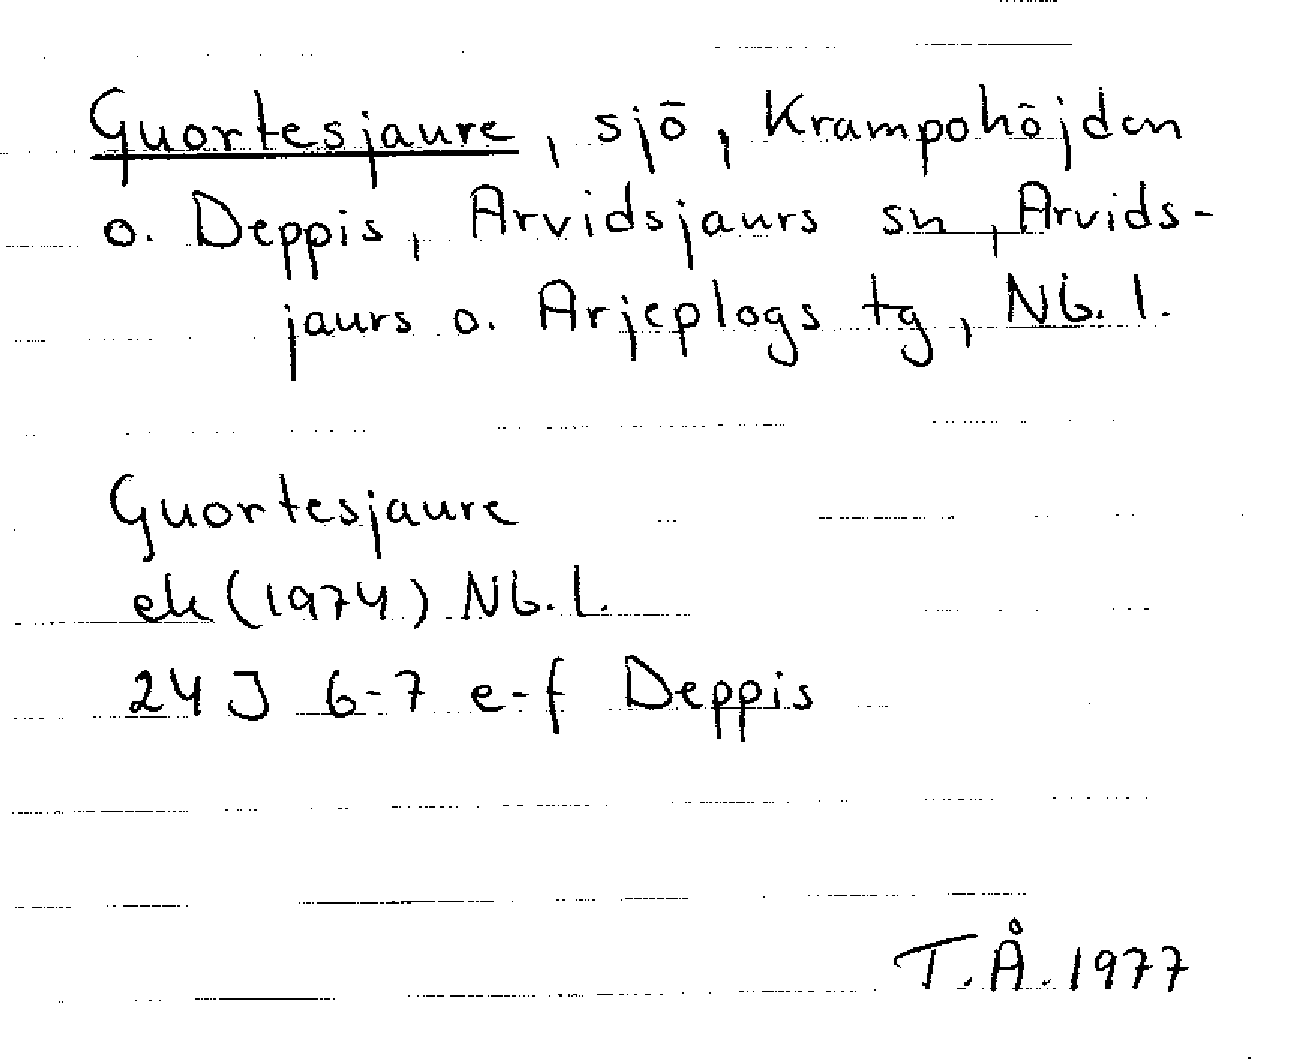 Guortesjaure, sjö, Krampohöjden
o. Deppis, Arvidsjaurs sn, Arvids-
jaurs o. Arjeplogs tg, Nb. l.
Guortesjaure
ek (1974) Nb. L.
24 J 6-7 e-f Deppis
T.Å. 1977